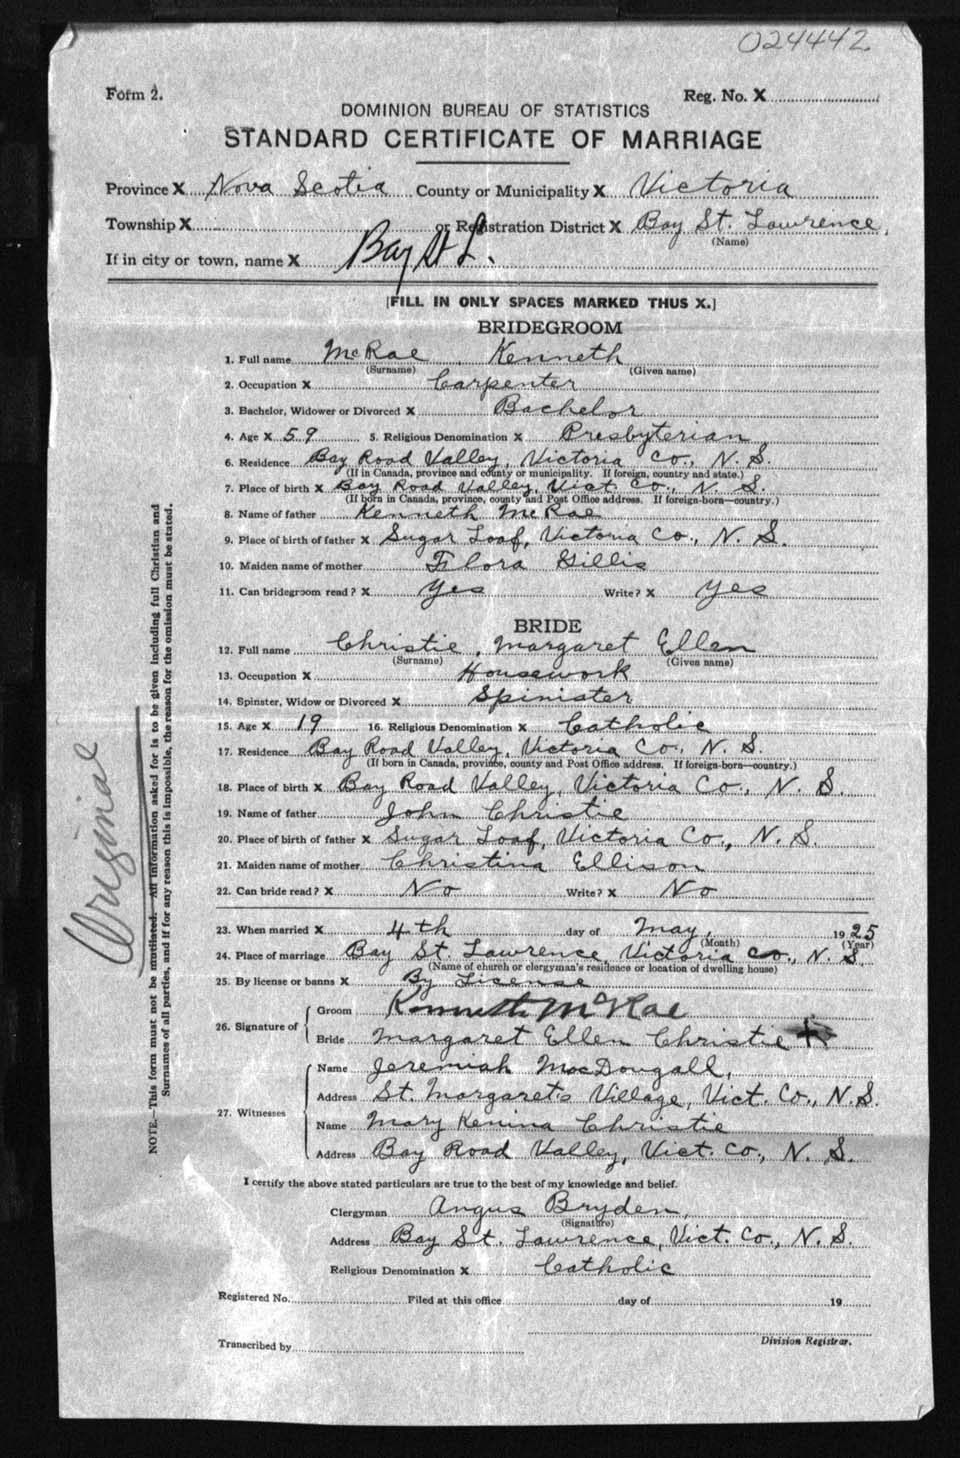 024442
Form 2.
Reg. No. X
DOMINION BUREAU OF STATISTICS
STANDARD CERTIFICATE OF MARRIAGE
Province X Nova Scotia County or Municipality X Victoria
Township X or Registration District X Bay St. Lawrence,
(Name)
If in city or town, name X Bay St L.
[FILL IN ONLY SPACES MARKED THUS X.]
BRIDEGROOM
1. Full name McRae Kenneth
(Surname) (Given name)
2. Occupation X Carpenter
3. Bachelor, Widower or Divorced X Bachelor
4. Age X 59 5. Religious Denomination X Presbyterian
6. Residence Bay Road Valley, Victoria Co., N. S.
(If in Canada, province and county or municipality. If foreign, country and state.)
7. Place of birth X Bay Road Valley, Vict. Co., N. S.
(If born in Canada, province, county and Post Office address. If foreign-born—country.)
8. Name of father Kenneth McRae
9. Place of birth of father X Sugar Loaf, Victoria Co., N. S.
10. Maiden name of mother Flora Gillis
11. Can bridegroom read? X Yes Write? X Yes
BRIDE
12. Full name Christie, Margaret Ellen
(Surname) (Given name)
13. Occupation X Housework
14. Spinster, Widow or Divorced X Spinister
15. Age X 19 16. Religious Denomination X Catholic
17. Residence Bay Road Valley, Victoria Co., N. S.
(If born in Canada, province, county and Post Office address. If foreign-born—country.)
18. Place of birth X Bay Road Valley, Victoria Co., N. S.
19. Name of father John Christie
20. Place of birth of father X Sugar Loaf, Victoria Co., N. S.
21. Maiden name of mother Christina Ellison
22. Can bride read? X No Write? X No
23. When married X 4th day of May, 1925
(Month) (Year)
24. Place of marriage Bay St. Lawrence, Victoria Co., N. S.
(Name of church or clergyman's residence or location of dwelling house)
25. By license or banns X By License
26. Signature of
Groom Kenneth McRae
Bride Margaret Ellen Christie X
27. Witnesses
Name Jeremiah MacDougall,
Address St. Margaret's Village, Vict. Co., N.S.
Name Mary Kenina Christie
Address Bay Road Valley, Vict. Co., N. S.
I certify the above stated particulars are true to the best of my knowledge and belief.
Clergyman Angus Bryden,
(Signature)
Address Bay St. Lawrence, Vict. Co., N. S.
Religious Denomination X Catholic
Registered No. Filed at this office day of 19
Division Registrar.
Transcribed by
Original
NOTE.—This form must not be mutilated. All information asked for is to be given including full Christian and
Surnames of all parties, and if for any reason this is impossible, the reason for the omission must be stated.